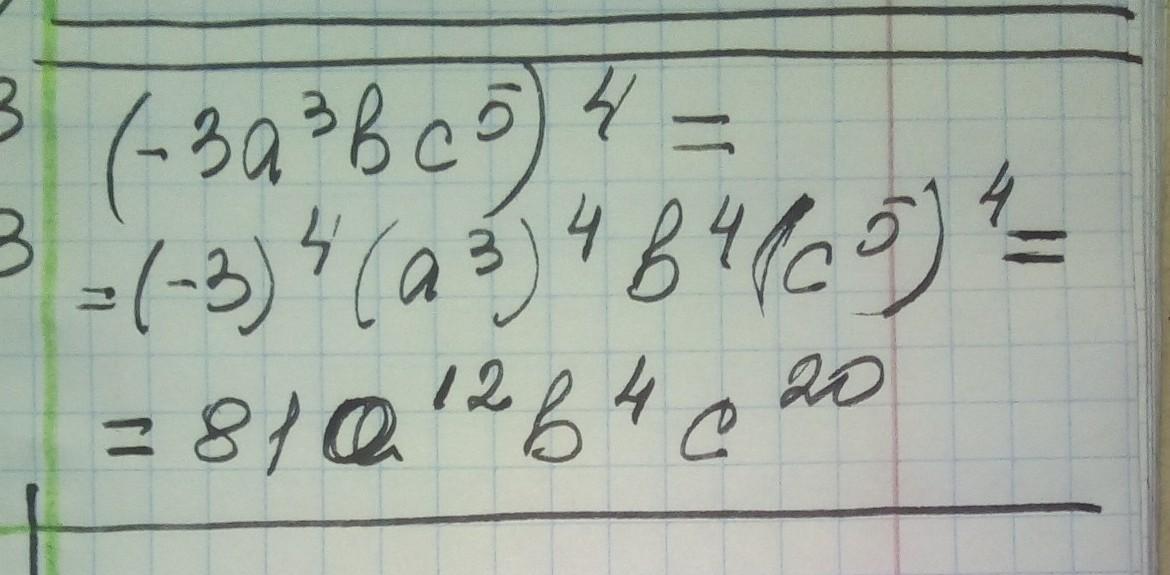 (-3a³bc⁵)⁴ =
= (-3)⁴(a³)⁴b⁴(c⁵)⁴ =
= 81a¹²b⁴c²⁰